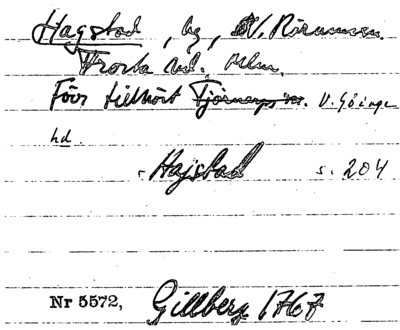 Hagstad, by, N. Rörum sn.
Frosta hd. Mlm.
Förr tillhört Tjörnarps sn. V. Göinge
hd.
Hajstad s. 204
Nr 5572, Gillberg 1767